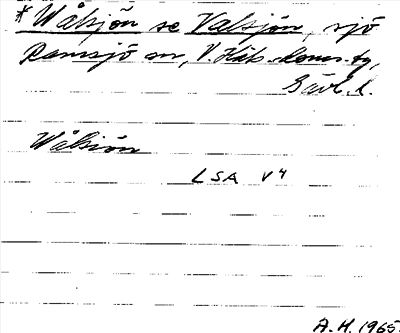 *Wålsjön se Valsjön, sjö
Ramsjö sn, V. Häls. doms. tg,
Gävl. l.
Wålsiön
LSA V4
A.H. 1965.